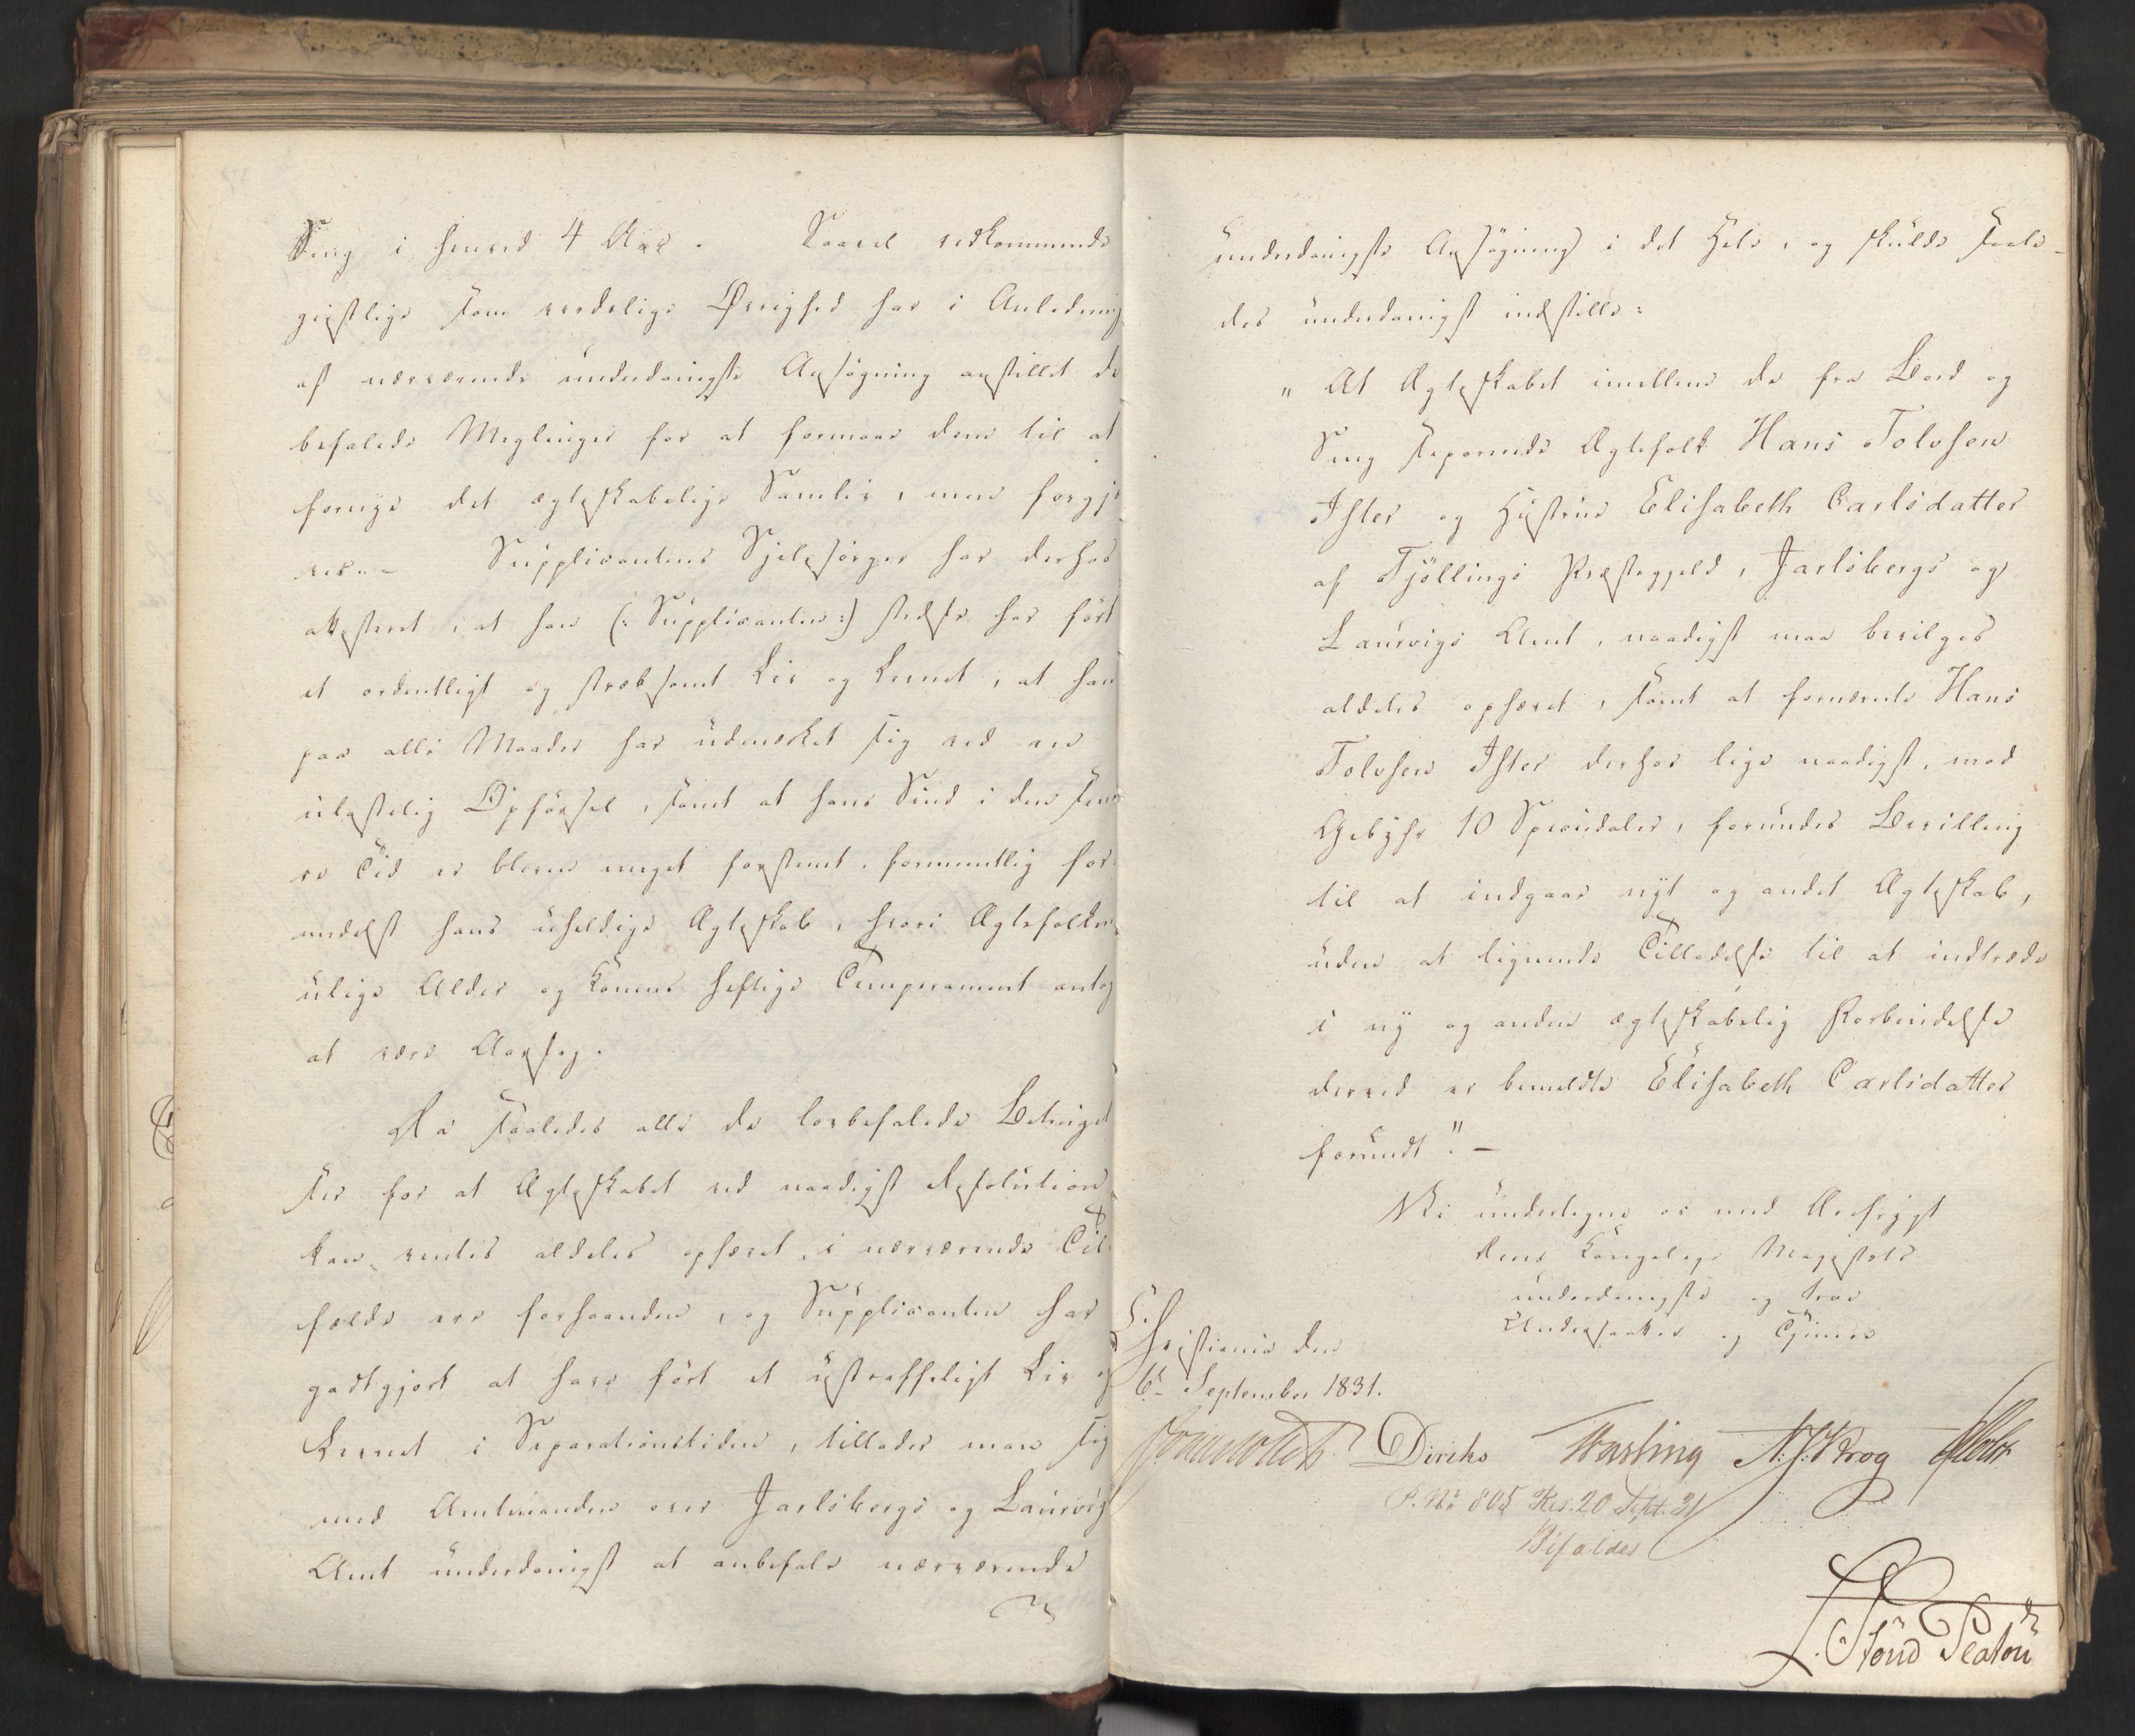 Seng i henved 4 Aar. Saavel vedkommende
geistlige som verdslige Øvrighed har i Anledning
af nærværende underdanigste Ansøgning anstillet de
befalede Meglinger for at formaae dem til at
fornye det ægteskabelige Samliv, men forgje-
ves. – Supplicantens Sjelesørger har derhos
attesteret, at han (: Supplicanten :) stedse har ført
et ordentligt og stræbsomt Liv og Levnet, at han
paa alle Maader har udmærket sig ved en
ulastelig Opførsel, samt at hans Sind i den sene-
re Tid er bleven meget forstemt, formentlig for-
medelst hans uheldige Ægteskab, hvori Ægtefolkenes
ulige Alder og Konens heftige Temperament antog
at være Aarsag.
Da saaledes alle de lovbefalede Betingel-
ser for at Ægteskabet ved naadigst Resolution
kan ventes aldeles ophævet, i nærværende Til-
fælde ere forhaanden, og Supplicanten har
godtgjort at have ført et ustraffeligt Liv og
Levnet i Separationstiden, tillader man sig
med Amtmanden over Jarlsbergs og Laurvigs
Amt underdanigst at anbefale nærværende
underdanigste Ansøgning i det Hele, og skulde saale-
des underdanigst indstille:
„At Ægteskabet imellem de fra Bord og
Seng separerede Ægtefolk Hans Tolvsen
Ister og Hustrue Elisabeth Carlsdatter
af Tjøllings Præstegjeld, Jarlsbergs og
Laurvigs Amt, naadigst maa bevilges
aldeles ophævet, samt at fornævnte Hans
Tolvsen Ister derhos lige naadigst, mod
Gebyhr 10 Speciedaler, forundes Bevilling
til at indgaae nyt og andet Ægteskab,
uden at lignende Tilladelse til at indtræde
i ny og anden ægteskabelig Forbindelse
derved er bemeldte Elisabeth Carlsdatter
forundt." –
Vi undertegne os med Ærefrygt
Deres Kongelige Majestæts
underdanigste og troe
Undersaatter og Tjenere
Christiania den
6te September 1831.
Diriks N. J. Krog
P. No 805 Res. 20 Sept. 31
Bifaldes